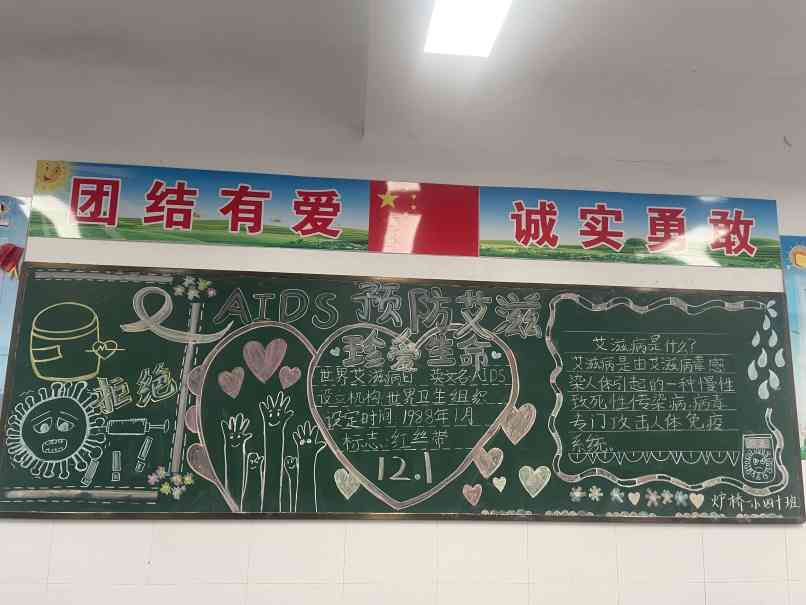 团结有爱 诚实勇敢
AIDS 预防艾滋
珍爱生命
拒绝
世界艾滋病日 英文名AIDS
设立机构 世界卫生组织
设定时间 1988年1月
标志:红丝带
12.1
艾滋病是什么?
艾滋病是由艾滋病毒感
染人体引起的一种慢性
致死性传染病,病毒
专门攻击人体免疫
系统。
炉桥一小四十班